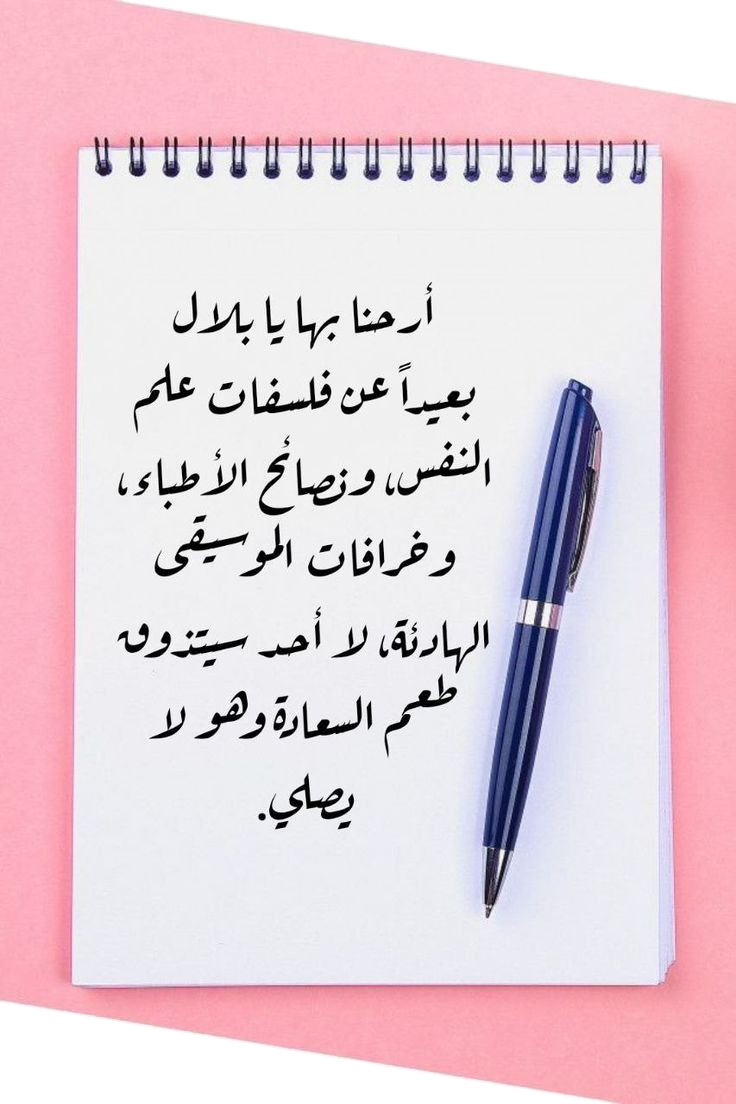 أرحنا بها يا بلال
بعيداً عن فلسفات علم
النفس، ونصائح الأطباء،
وخرافات الموسيقى
الهادئة، لا أحد سيتذوق
طعم السعادة وهو لا
يصلي.